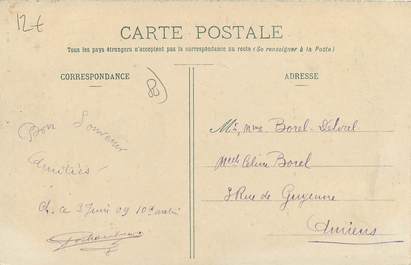 12€
CARTE POSTALE
Tous les pays étrangers n'acceptent pas la correspondance au recto (Se renseigner à la Poste)
CORRESPONDANCE
ADRESSE
Bon Souvenir
Amitiés!
Ch. ce 3 Juin 09 10h matin
Mr, Mme Borel-Delvoel
Melle Céline Borel
3 Rue de Guyenne
Amiens